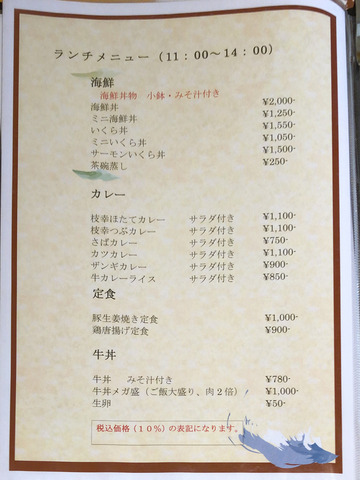 ランチメニュー（11：00～14：00）
海鮮
海鮮丼物　小鉢・みそ汁付き
海鮮丼 ¥2,000-
ミニ海鮮丼 ¥1,250-
いくら丼 ¥1,550-
ミニいくら丼 ¥1,050-
サーモンいくら丼 ¥1,500-
茶碗蒸し ¥250-
カレー
枝幸ほたてカレー サラダ付き ¥1,100-
枝幸つぶカレー サラダ付き ¥1,100-
さばカレー サラダ付き ¥750-
カツカレー サラダ付き ¥1,100-
ザンギカレー サラダ付き ¥900-
牛カレーライス サラダ付き ¥850-
定食
豚生姜焼き定食 ¥1,000-
鶏唐揚げ定食 ¥900-
牛丼
牛丼　みそ汁付き ¥780-
牛丼メガ盛（ご飯大盛り、肉2倍） ¥1,000-
生卵 ¥50-
税込価格（10％）の表記になります。